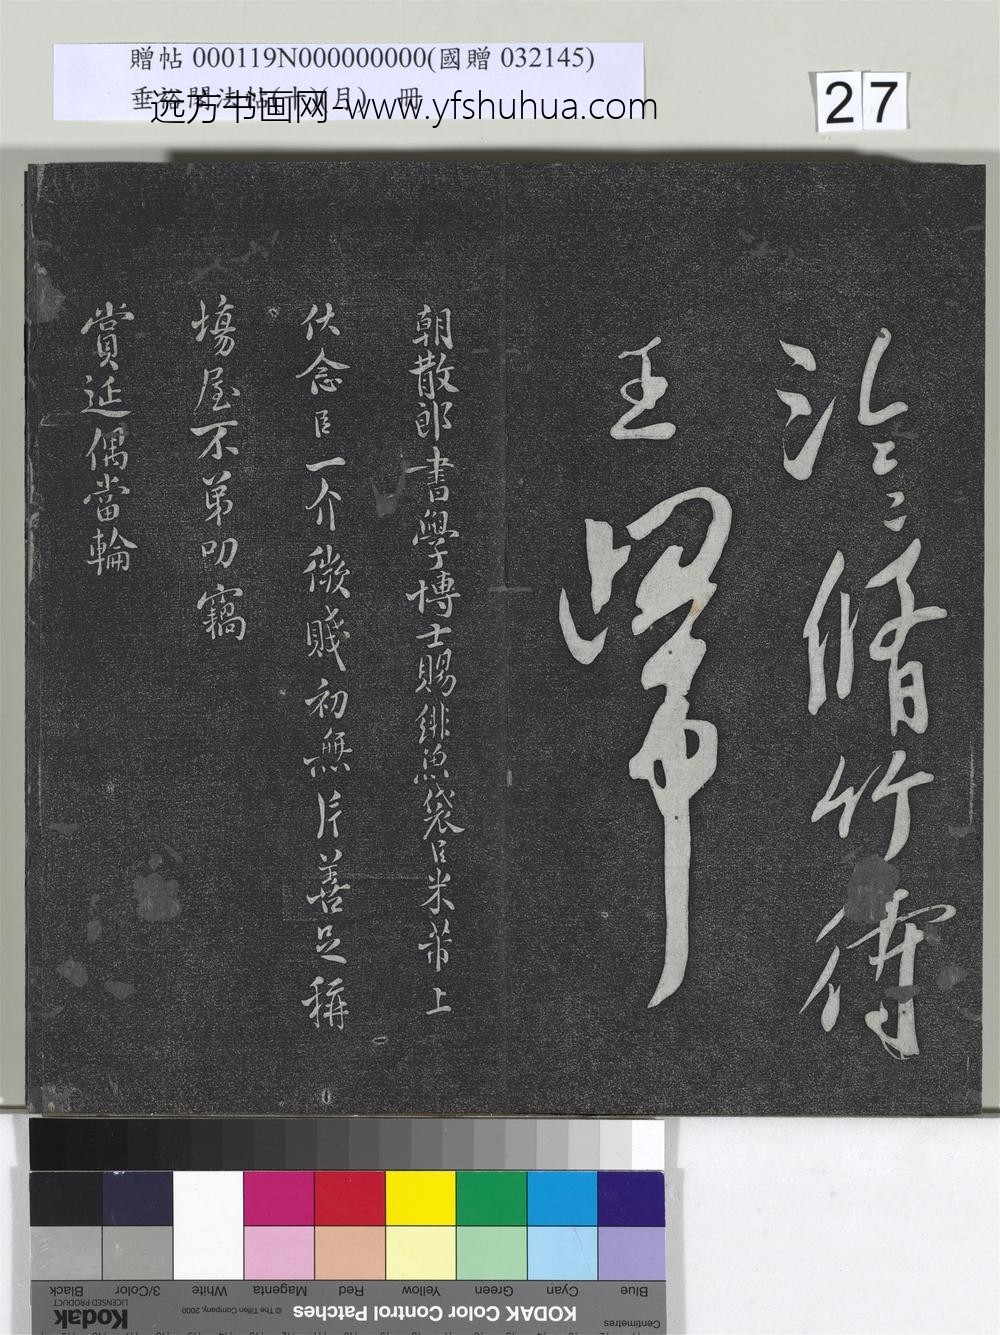 贈帖 000119N000000000(國贈 032145)
远方书画网-www.yfshuhua.com
27
泠泠脩竹待
王歸
朝散郎書學博士賜緋魚袋臣米芾上
伏念臣一介微賤初無片善足稱
場屋不第叨竊
賞延偶當輪
Blue Cyan Green Yellow Red Magenta White 3/Color Black
KODAK Color Control Patches
© The Tiffen Company, 2000
Kodak
LICENSED PRODUCT
Centimetres